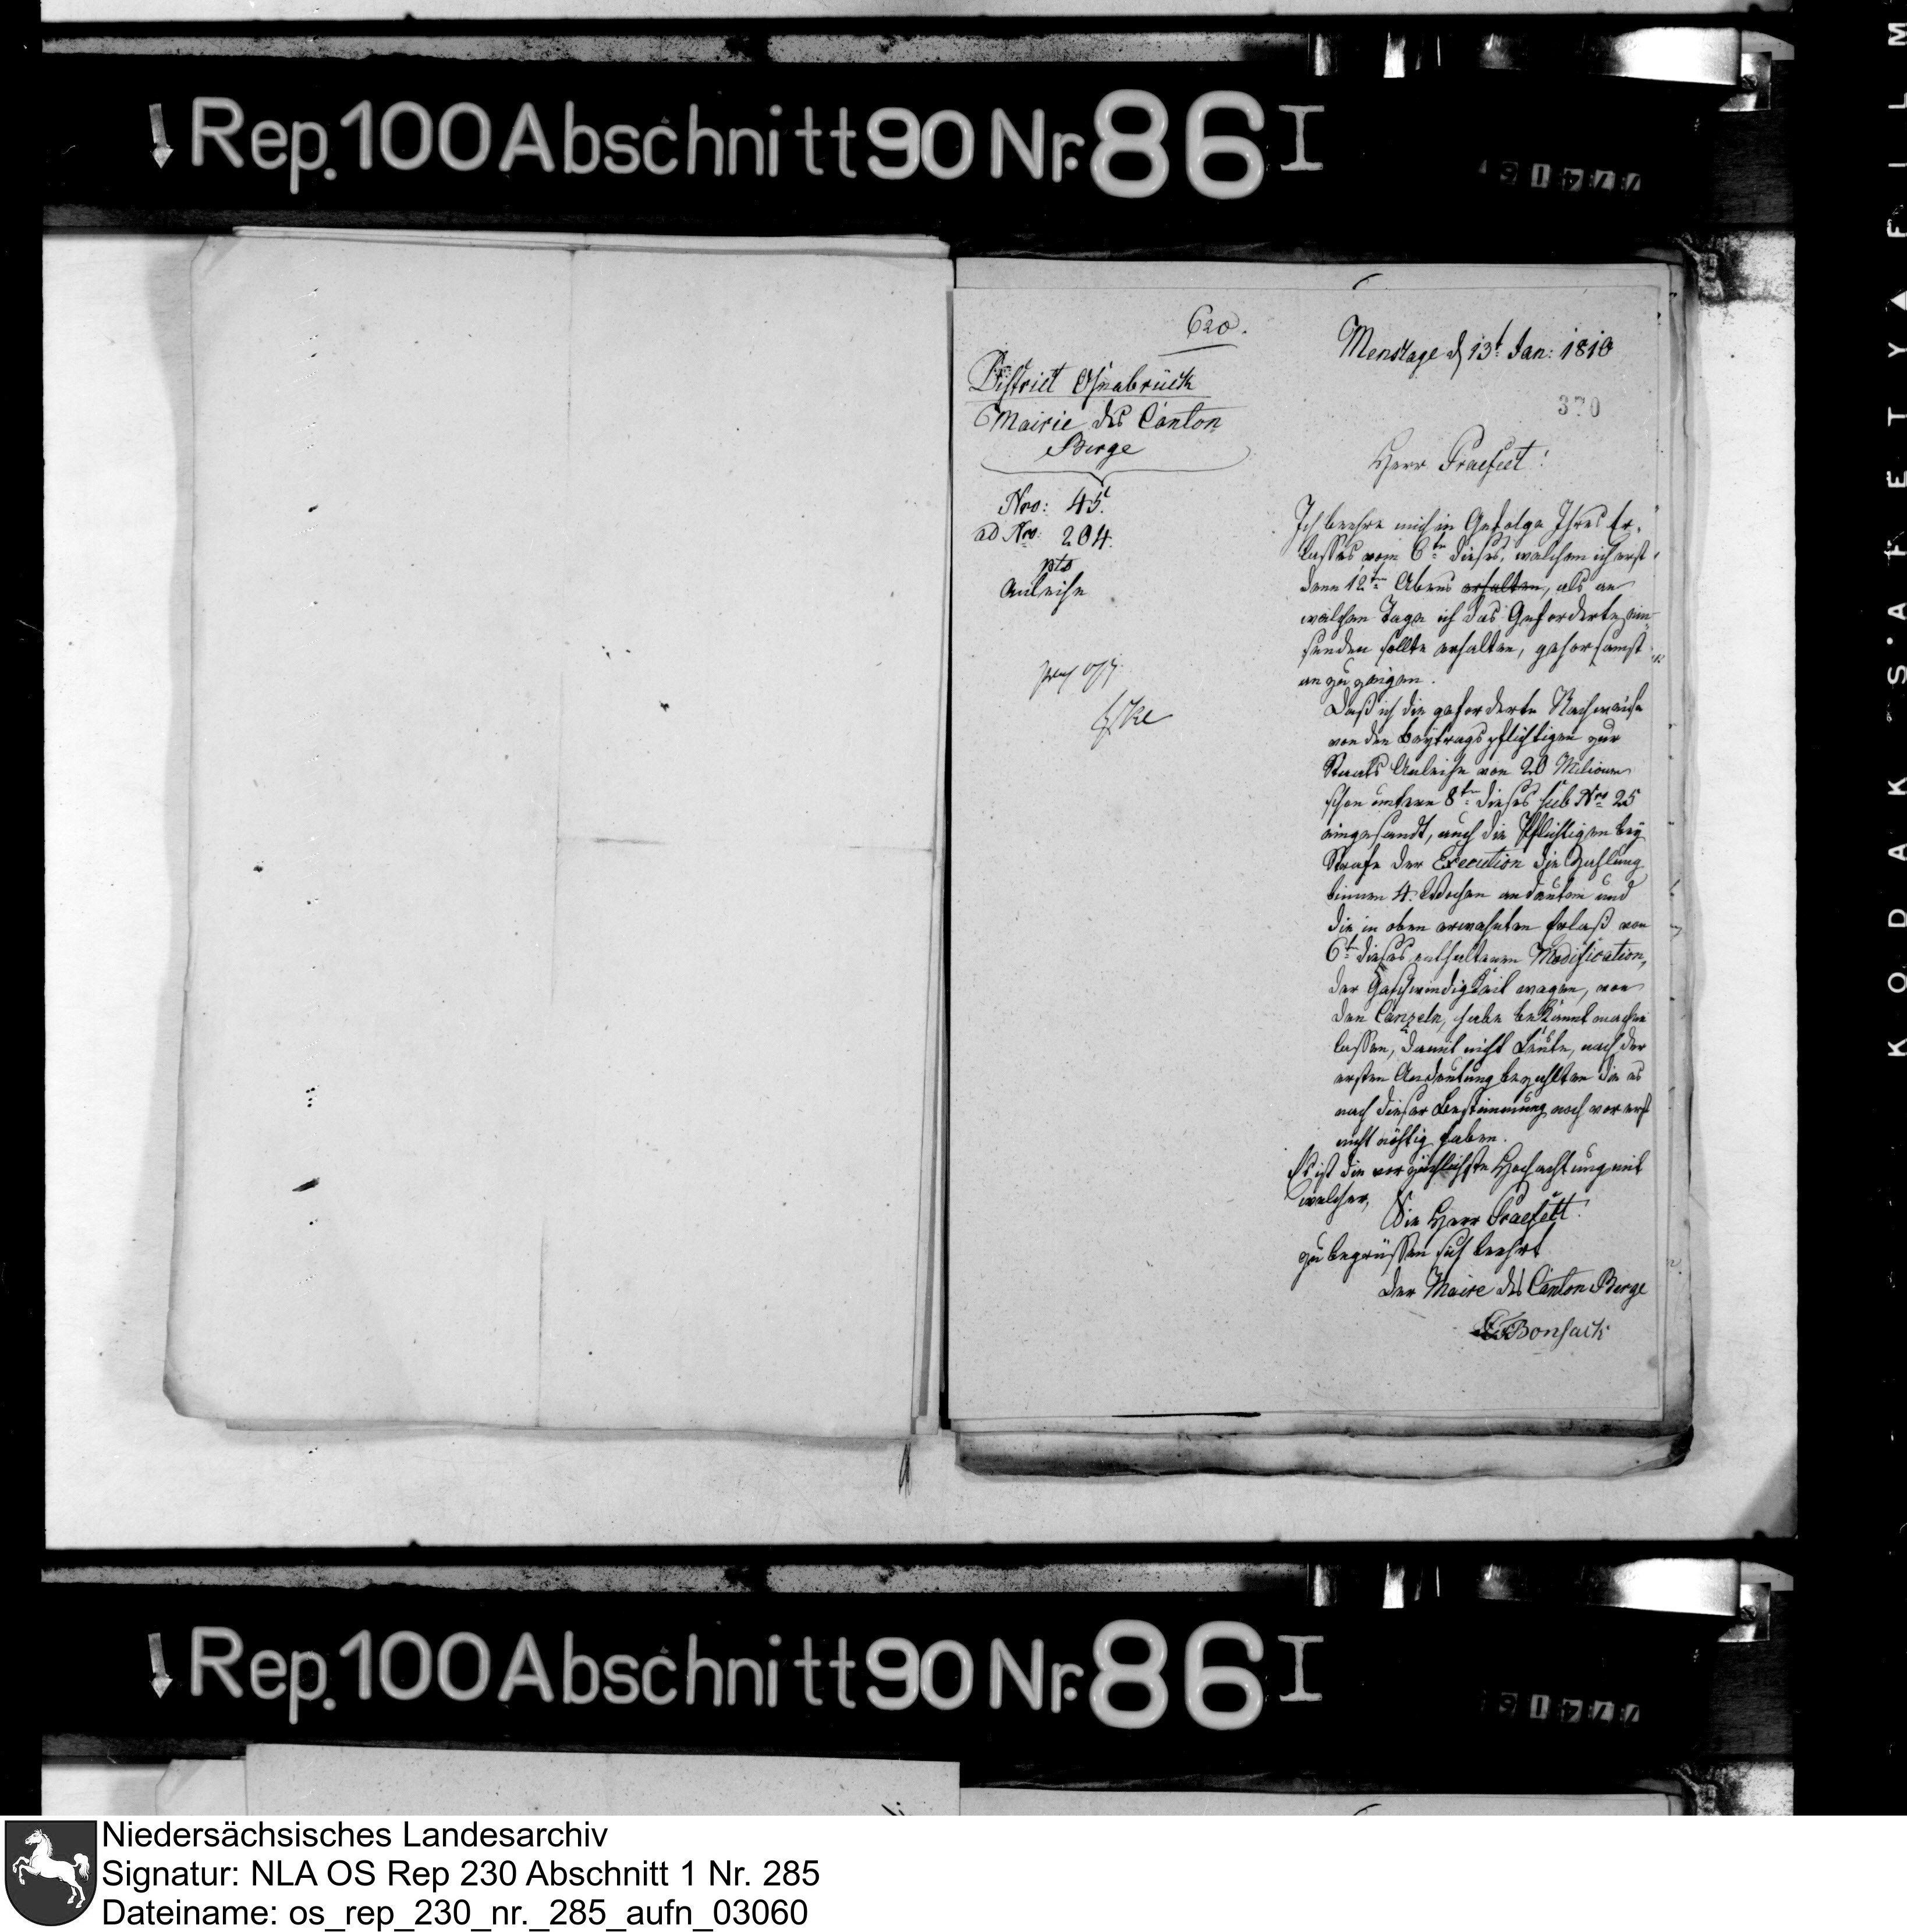 Rep. 100 Abschnitt 90 Nr. 86 I
620.
District Osnabrück
Mairie des Canton
Berge
Nro: 45.
ad Nro. 204.
pto
Anleihe
Menslage d 13t Jan: 1810
370
Herr Praefect!
Ich beehre mich in Gefolge Ihres Er-
lasses vom 6ten dieses, welchen ich erst
denn 12ten Abens erhalten, als an
welchen Tage ich das Geforderte ein-
senden sollte erhalten, gehorsamst
anzuzeigen.
Daß ich die geforderte Nachweise
von den Beytragspflichtigen zur
Staats Anleihe von 20 Milionen
schon untern 8ten dieses sub Nro 25
eingesandt, auch die Pflichtigen bey
Strafe der Execution die Zahlung
binnen 4. Wochen andeuten und
die in oben erwehnten Erlaß von
6t dieses enthaltenen Modification,
der Geschwindigkeit wegen, von
den Canzeln, habe bekannt machen
lassen, damit nicht Leute, nach der
ersten Andeutung bezahlten die es
nach dieser Bestimmung noch vor erst
nicht nöhtig haben.
Es ist die vorzüchlichste Hochachtung mit
welcher,
Sie Herr Praefect!
zu begrüssen sich beehrt
der Maire des Canton Berge
Bonsack
Rep. 100 Abschnitt 90 Nr. 86 I
KODAK SAFETY FILM
Niedersächsisches Landesarchiv
Signatur: NLA OS Rep 230 Abschnitt 1 Nr. 285
Dateiname: os_rep_230_nr._285_aufn_03060